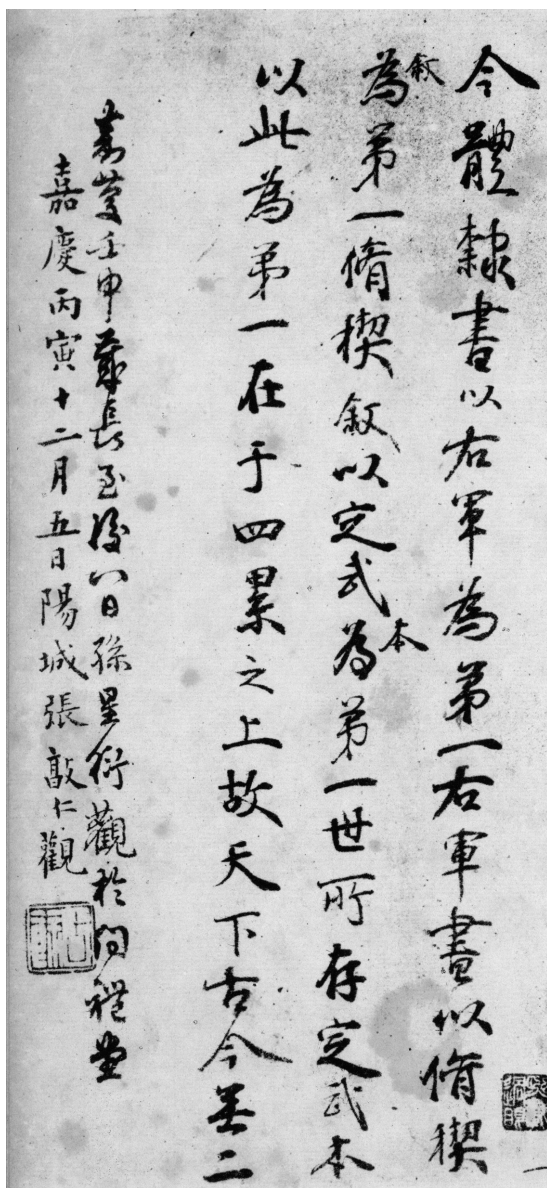 今體隸書以右軍為第一右軍書以脩禊
敘為第一脩禊敘以定武本為第一世所存定武本
以此為第一在于四累之上故天下古今無二
嘉慶壬申歲長至後八日孫星衍觀於問禮堂
嘉慶丙寅十二月五日陽城張敦仁觀